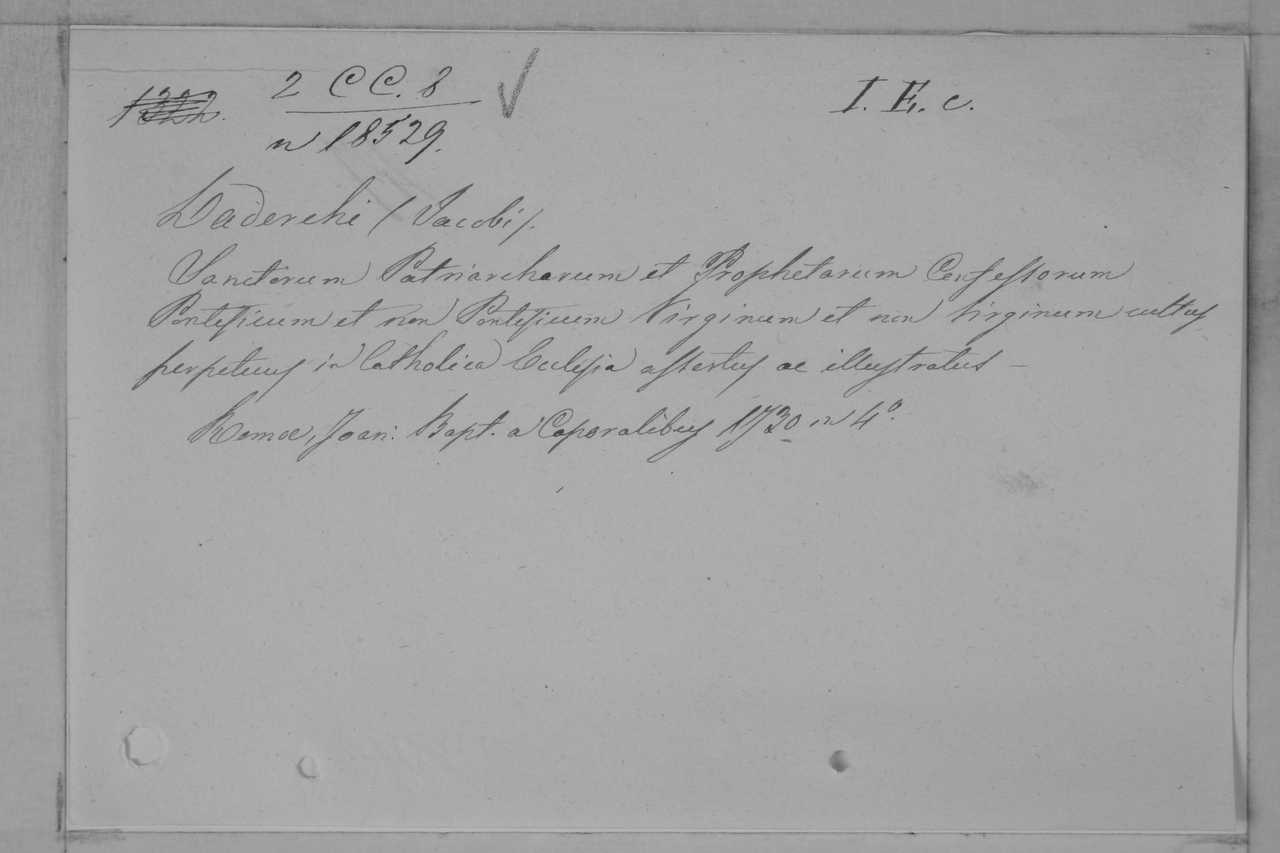 2 CC. 8
n 18529.
I. E. c.
Laderchi (Jacobi).
Sanctorum Patriarcharum et Prophetarum Confessorum
Pontificum et non Pontificum Virginum et non Virginum cultus
perpetuus in Catholica Eclesia assertus ac illustratus –
Romæ, Joan: Bapt. a Caporalibus 1730 in 4º.